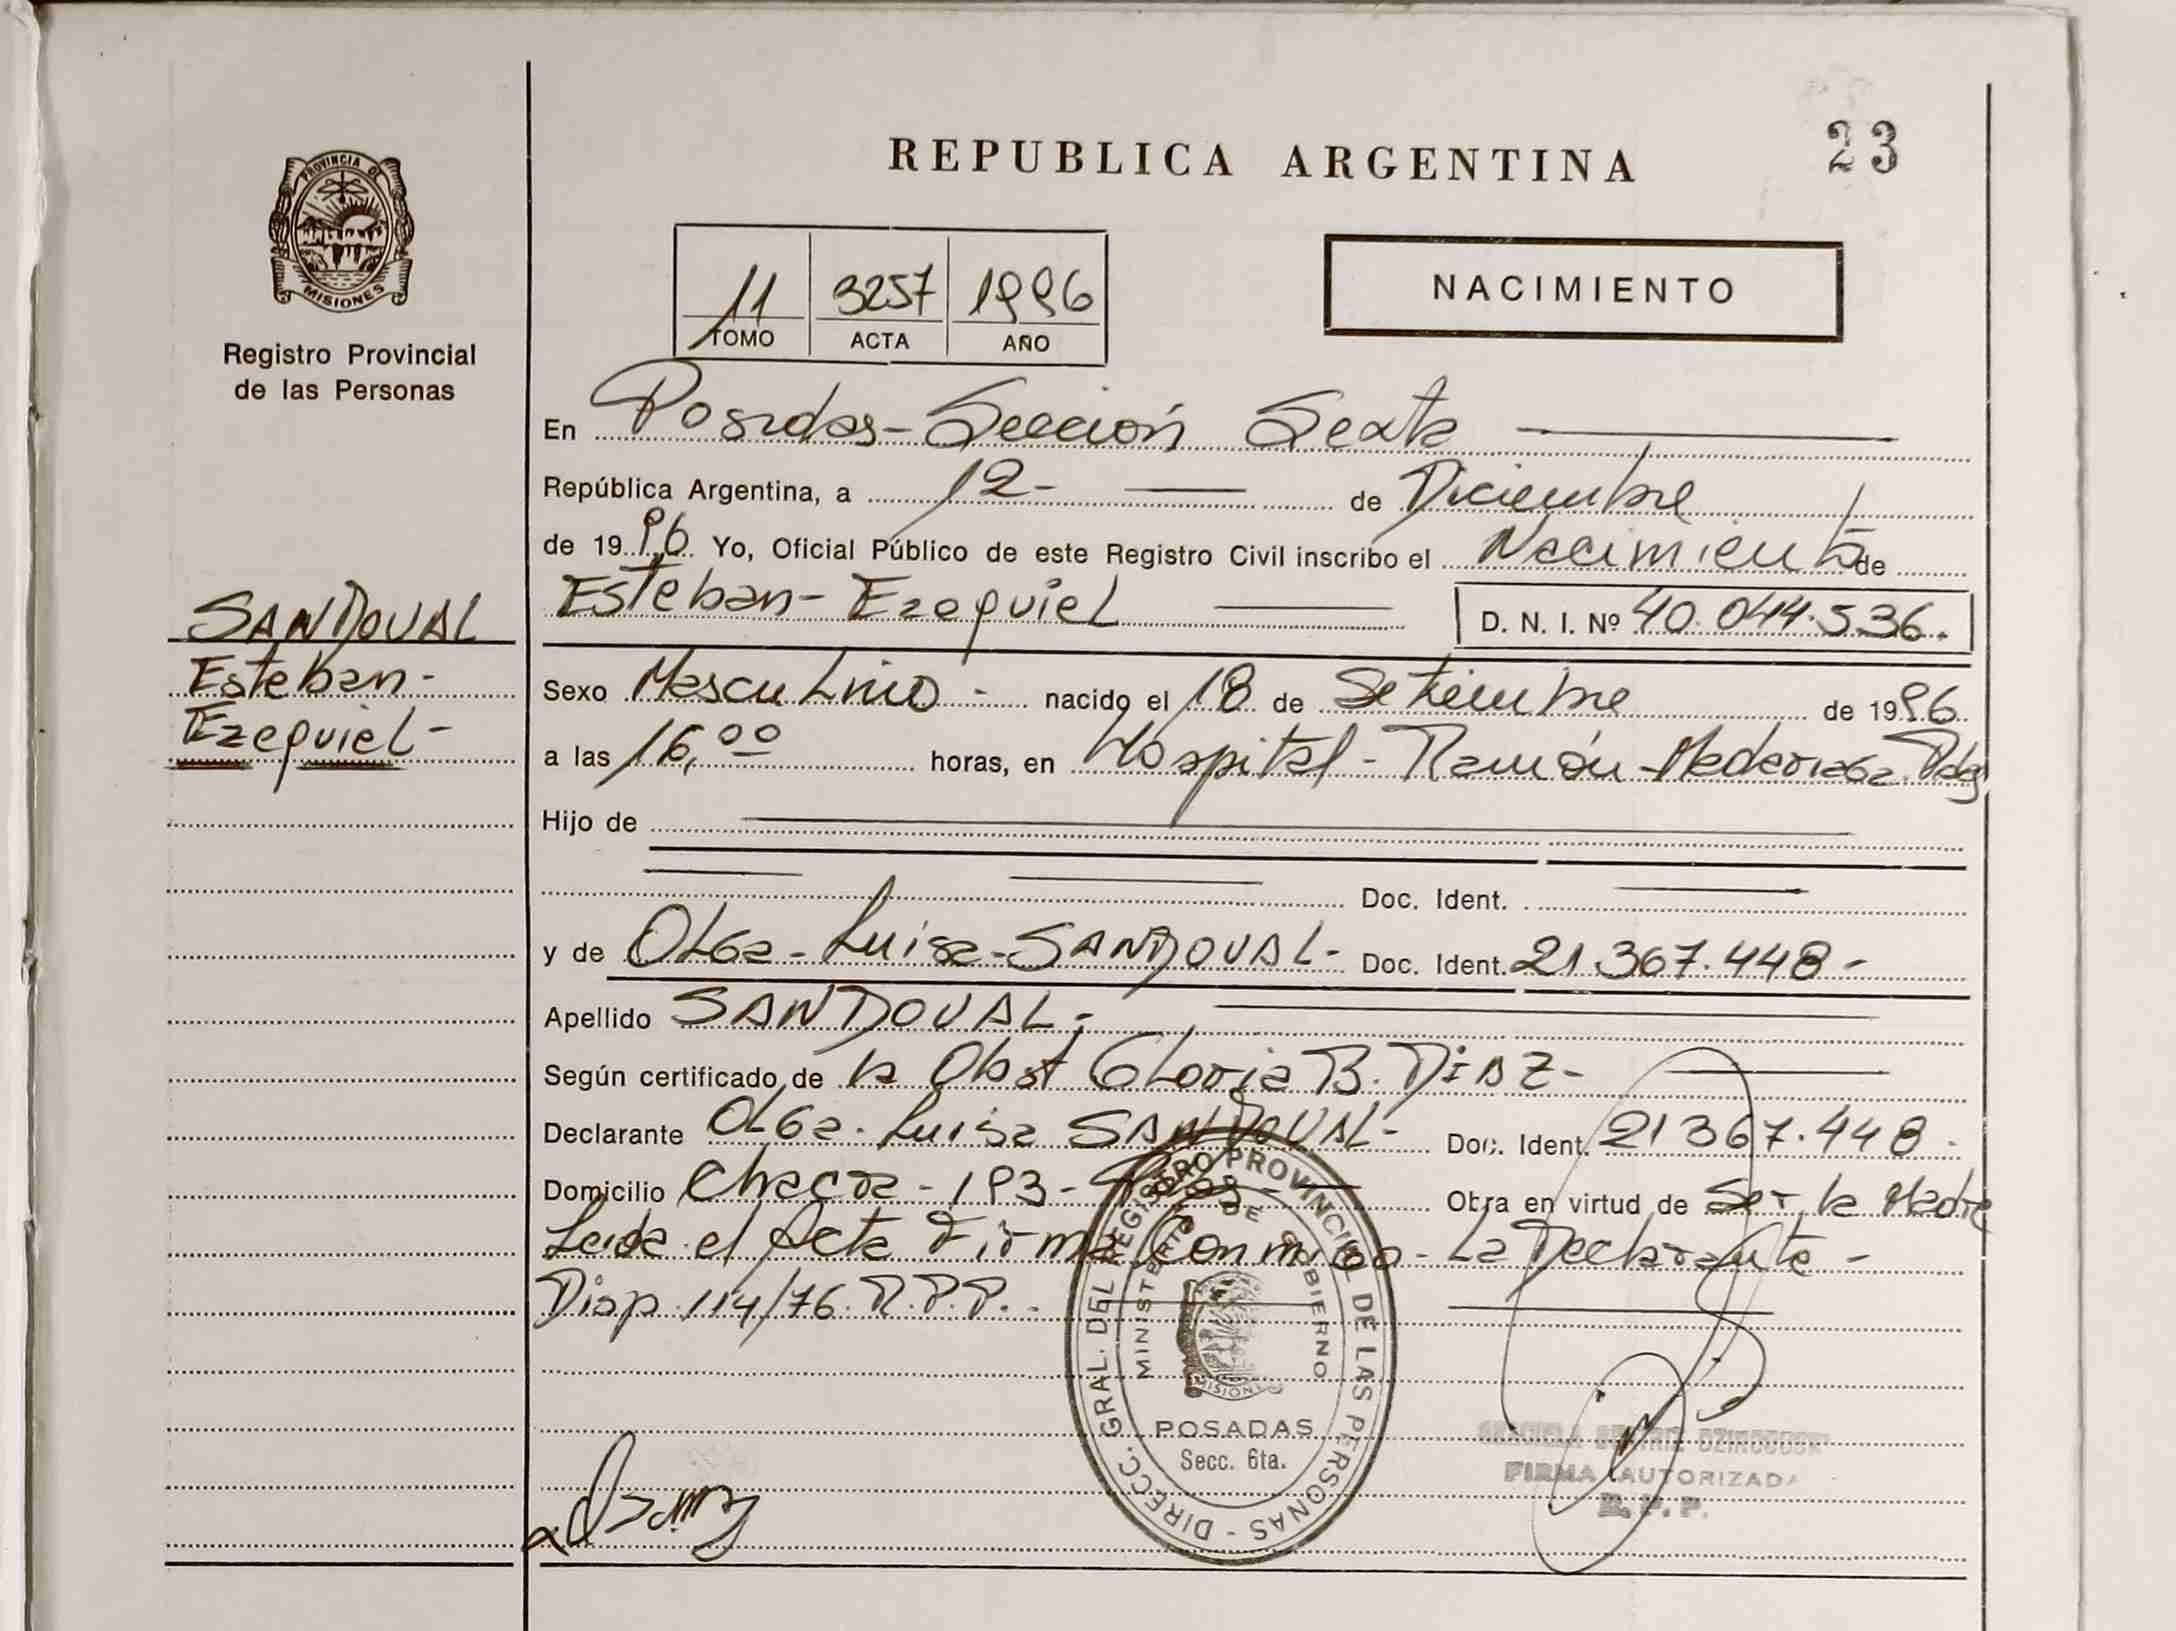 REPUBLICA ARGENTINA
23
PROVINCIA DE
MISIONES
Registro Provincial
de las Personas
NACIMIENTO
11 3257 1996
TOMO ACTA AÑO
En Posadas - Sección Sexta
República Argentina, a 12 - de Diciembre
de 1996 Yo, Oficial Público de este Registro Civil inscribo el Nacimiento de
Esteban - Ezequiel D. N. I. Nº 40.044.536.
SANDOVAL
Esteban -
Ezequiel -
Sexo Masculino - nacido el 18 de Setiembre de 1996
a las 16,00 horas, en Hospital - Ramón Madariaga Pdas
Hijo de
Doc. Ident.
y de Olga - Luisa - SANDOVAL - Doc. Ident. 21 367.448 -
Apellido SANDOVAL -
Según certificado de la Obst Gloria B. DIAZ -
Declarante Olga - Luisa SANDOVAL - Doc. Ident. 21 367.448 -
Domicilio Chacra - 193 - Pdas - Obra en virtud de Ser la Madre
Leida el Acta Firma Conmigo - La Declarante -
Disp. 114/76. R.P.P. -
DIRECC. GRAL. DEL REGISTRO PROVINCIAL DE LAS PERSONAS -
MINISTERIO DE GOBIERNO
MISIONES
POSADAS
Secc. 6ta.
FIRMA AUTORIZADA
R. P. P.